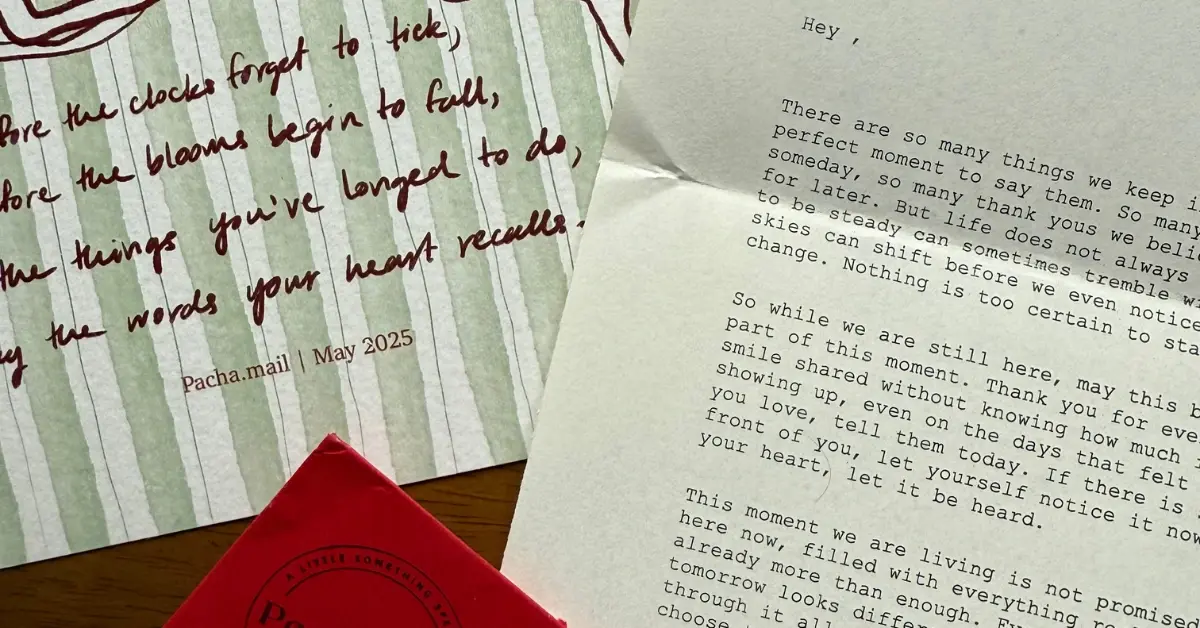 the clocks forget to tick,
the blooms begin to fall,
the things you've longed to do,
the words your heart recalls.
Pacha.mail | May 2025
A LITTLE SOMETHING
Hey ,
There are so many things we keep
perfect moment to say them. So many
someday, so many thank yous we
for later. But life does not always
to be steady can sometimes tremble
skies can shift before we even notice
change. Nothing is too certain to
So while we are still here, may this
part of this moment. Thank you for
smile shared without knowing how much
showing up, even on the days that felt
you love, tell them today. If there is
front of you, let yourself notice it now
your heart, let it be heard.
This moment we are living is not promised
here now, filled with everything
already more than enough.
tomorrow looks
through it all
choose